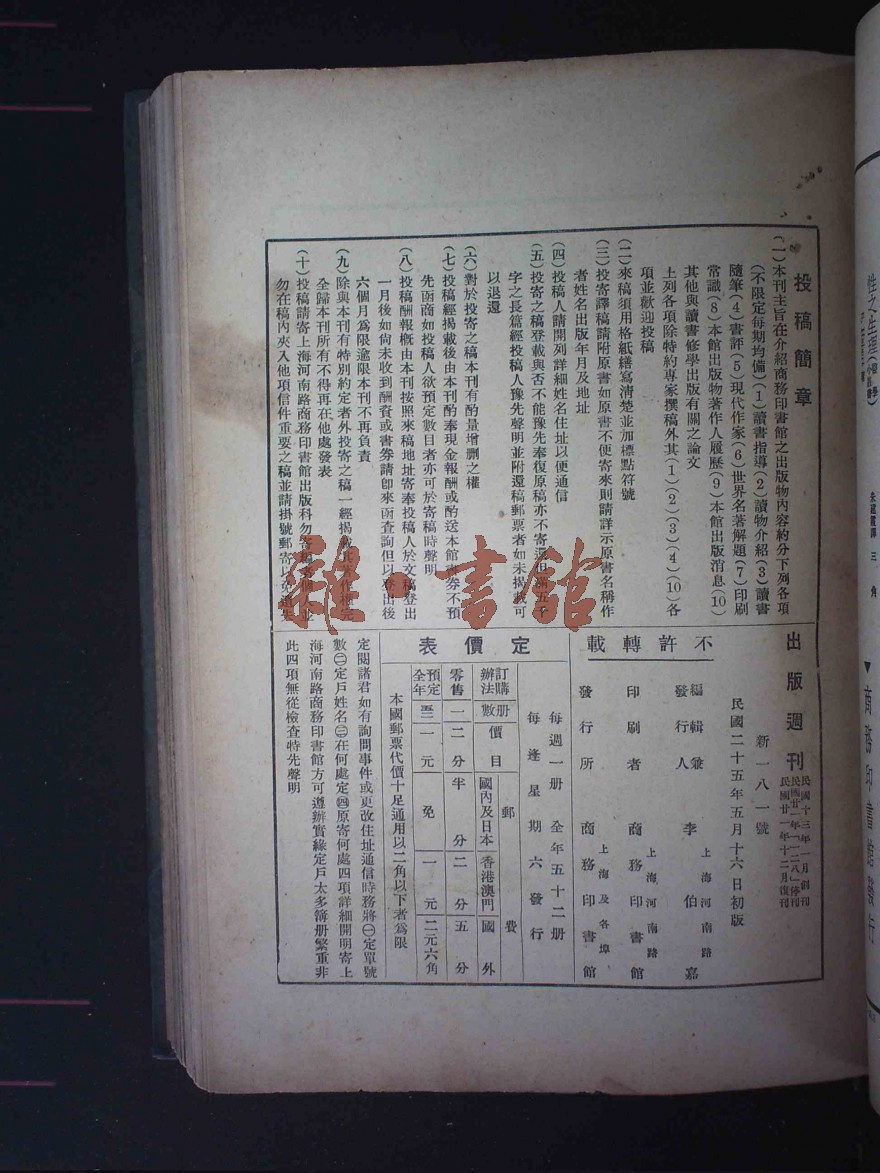 投稿簡章
(一)本刊主旨在介紹商務印書館之出版物內容約分下列各項
(不限定每期均備)(1)讀書指導(2)讀物介紹(3)讀書
隨筆(4)書評(5)現代作家(6)世界名著解題(7)印刷
常識(8)本館出版物著作人履歷(9)本館出版消息(10)
其他與讀書修學出版有關之論文
上列各項除特約專家撰稿外其(1)(2)(3)(4)(10)各
項並歡迎投稿
(二)來稿須用格紙繕寫清楚並加標點符號
(三)投寄譯稿請附原書如原書不便寄來則請詳示原書名稱作
者姓名出版年月及地址
(四)投稿人請開列詳細姓名住址以便通信
(五)投寄之稿登載與否不能豫先奉復原稿亦不寄還但滿五千
字之長篇經投稿人豫先聲明並附還稿郵票者如未揭載可
以退還
(六)對於投寄之稿本刊有酌量增刪之權
(七)投稿經揭載後由本刊酌奉現金報酬或酌送本館書券不預
先函商如投稿人欲預定數目者亦可於寄稿時聲明
(八)投稿酬報槪由本刊按照來稿地址寄奉投稿人於文稿登出
一月後如尙未收到酬資或書券請卽來函查詢但以登出後
六個月爲限逾限本刊不再負責
(九)除與本刊有特別約定者外投寄之稿一經揭載
全歸本刊所有不得再在他處發表
(十)投稿請寄上海河南路商務印書館出版科勿寄
勿在稿內夾入他項信件重要之稿並請掛號郵寄以免遺失
雜·書館
出版週刊
民國十三年一月創刊
民國廿一年「一二八」停刊
民國廿一年十二月復刊
新一八一號
民國二十五年五月十六日初版
不許轉載
編輯兼發行人 上海河南路 李伯嘉
印刷者 上海河南路 商務印書館
發行所 上海及各埠 商務印書館
每週一册 全年五十二册
每逢星期六發行
定價表
訂購辦法 册數 價目 郵費 國內及日本 香港澳門 國外
零售 一 二分 半分 二分 五分
預定全年 五二 一元 免 一元 二元六角
本國郵票代價十足通用以二角以下者爲限
定閱諸君如有詢問事件或更改住址通信時務將㊀定單號
數㊁定戶姓名㊂在何處定㊃原寄何處四項詳細開明寄上
海河南路商務印書館方可遵辦實緣定戶太多簿册繁重非
此四項無從檢查特先聲明
性之生理
朱建霞譯 三角
▼商務印書館發行